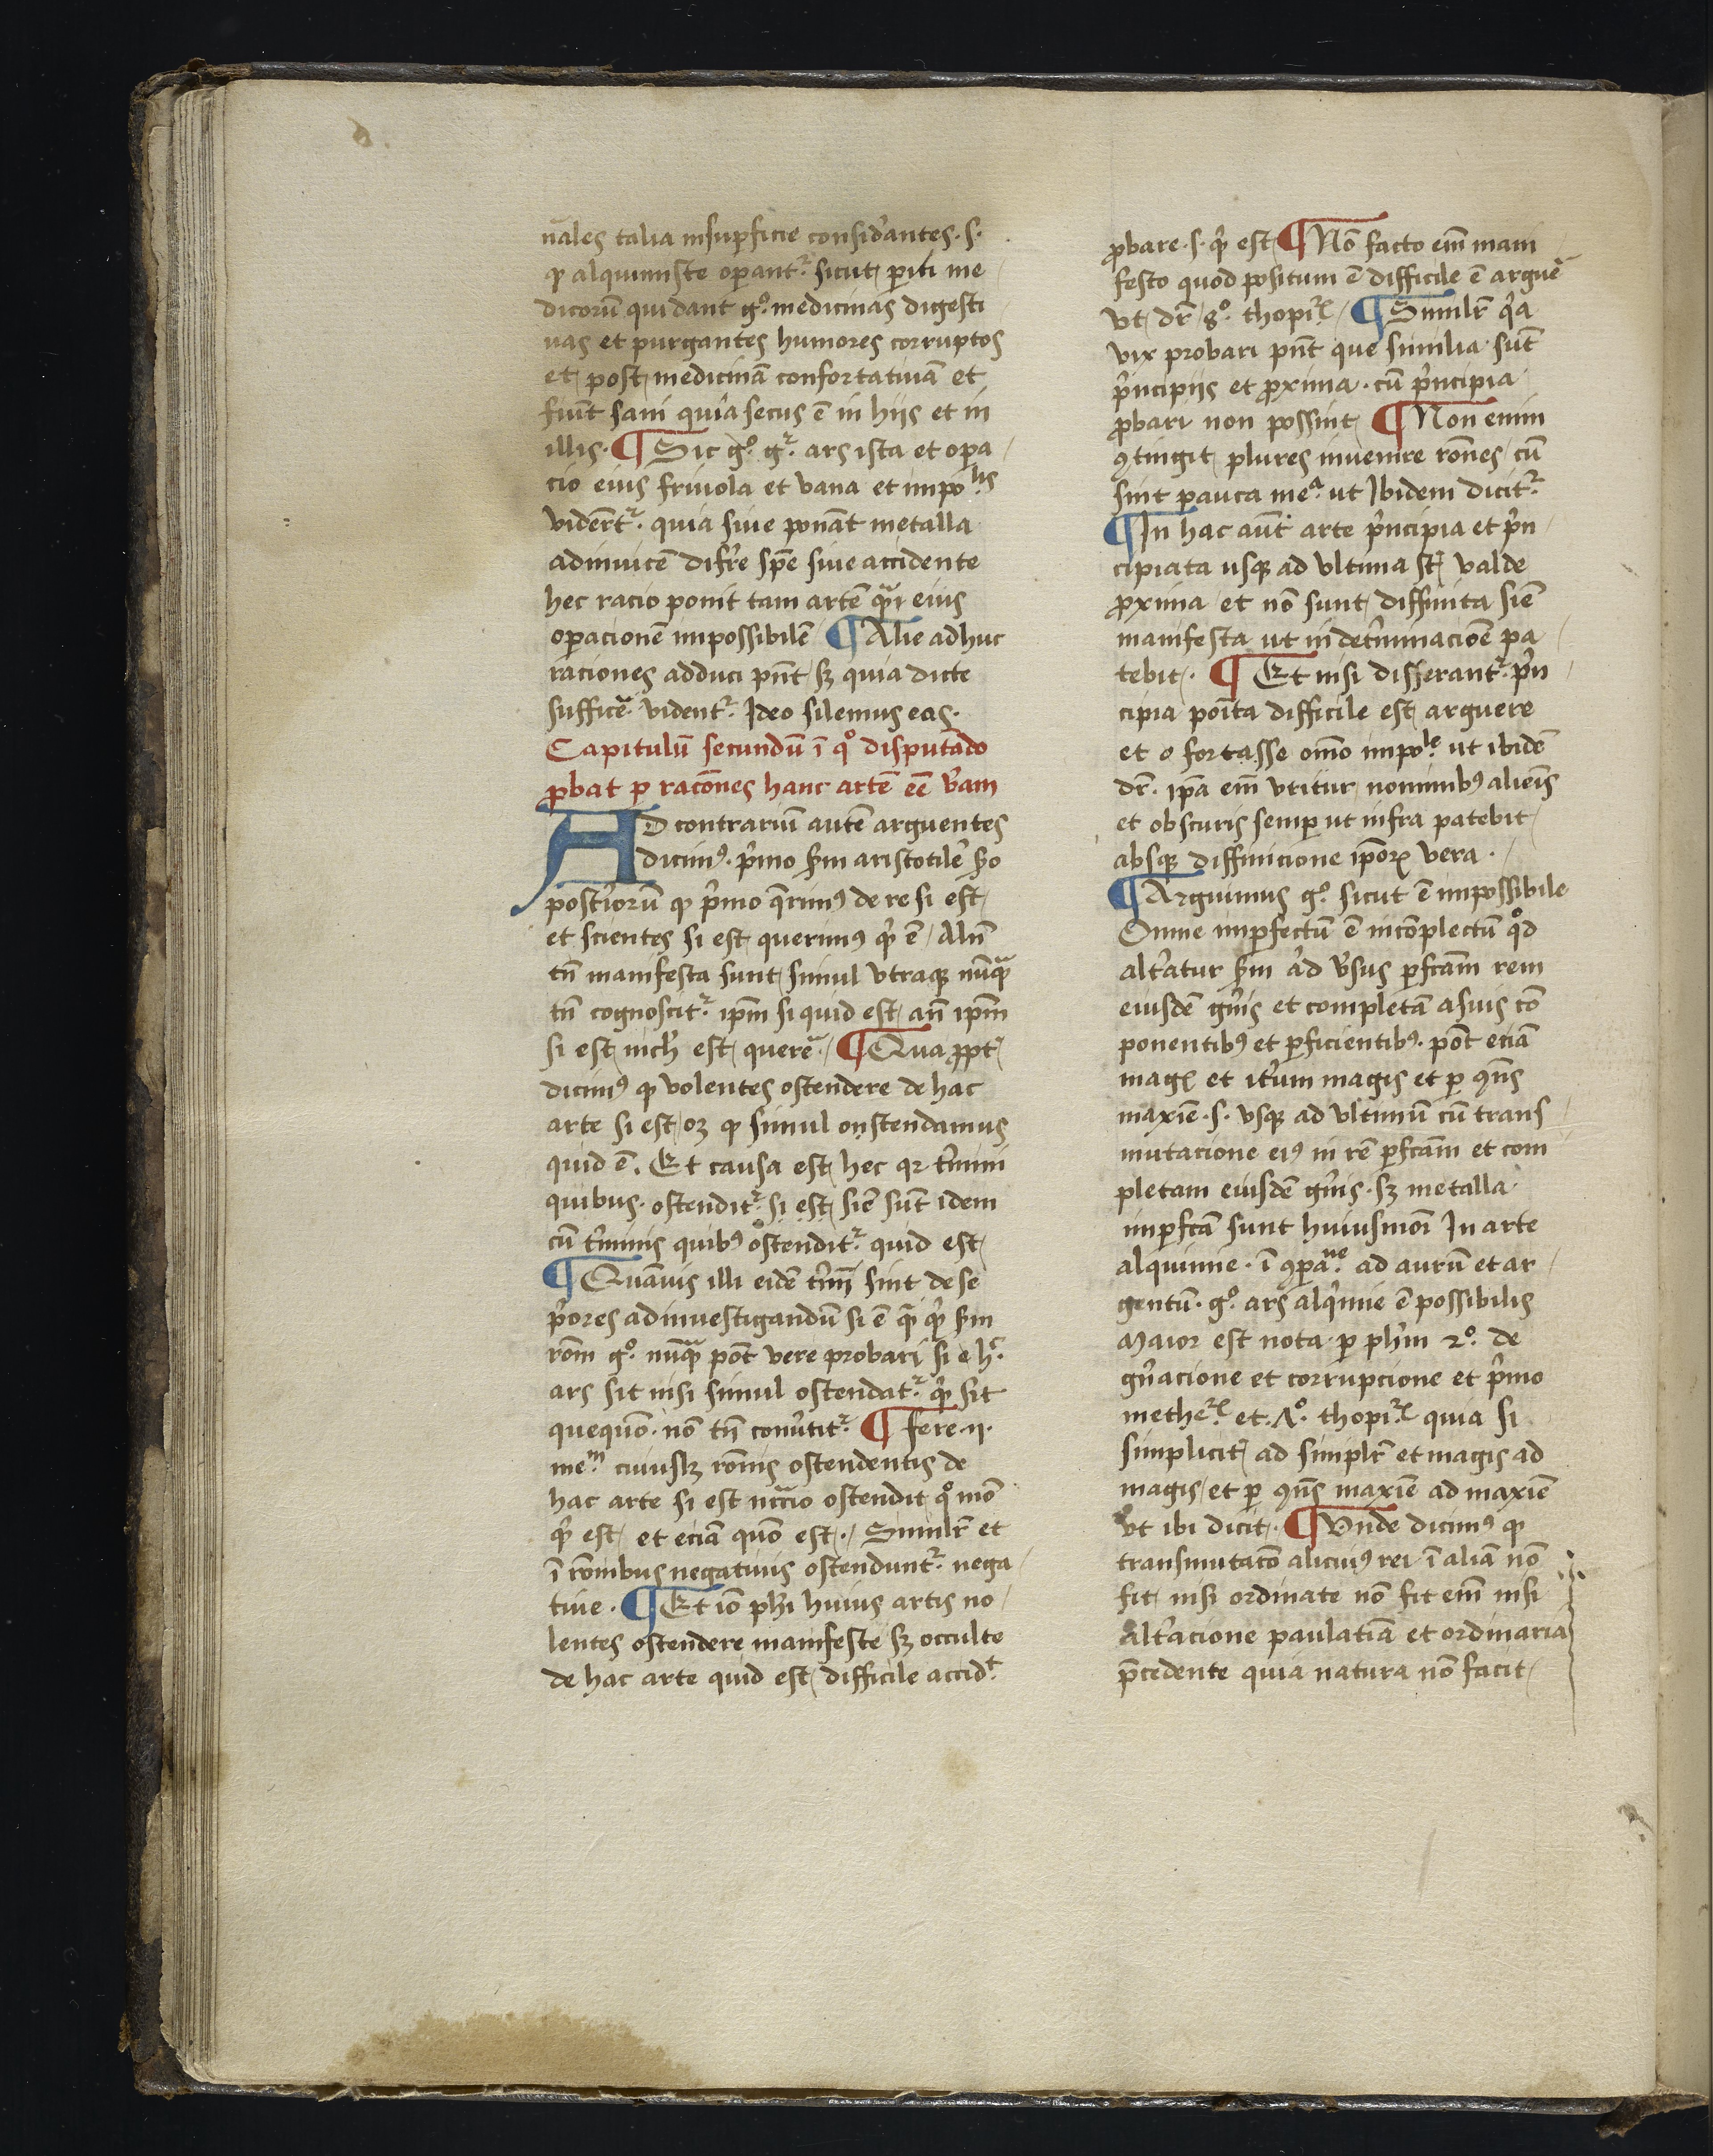 nāles talia in suꝑficie considerantes · s ·
ꝙ alquimiste oꝑant᷑ sicut periti me
dicorū qui dant gͦ medicinas digesti
uas et purgantes humores corruptos
et post medicinā confortatiuā et
fiūt sani quia secus ē in hijs et in
illis · ¶ Sic gͦ g᷑ ars ista et oꝑa
cio eius friuola et vana et impolis
viderēt᷑ quia siue ponāt metalla
adinuicē difr̄e spē siue accidente
hec racio ponit tam artē qͣꝫ eius
oꝑacionē impossibilē ¶ Alie adhuc
raciones adduci pn̄t sꝫ quia dicte
sufficē vident᷑ Ideo silemus eas ·
Capitulū secundū ī qͦ disputādo
ꝓbat ꝑ racōnes hanc artē eē verā
AD contrariū autē arguentes
dicimꝰ · pͥmo scḋm aristotilē scḋo
posterioꝝ ꝙ pͥmo qͣrimꝰ de re si est
et scientes si est querimꝰ qͥd ē / Alia
tn̄ manifesta sunt simul vtraqꝫ nūqͣꝫ
tn̄ cognoscit᷑ ip̄m si quid est an̄ ip̄m
si est nichil est querē / ¶ Qua ꝓpt̄
dicimꝰ ꝙ volentes ostendere de hac
arte si est / oꝫ ꝙ simul onstendamus
quid ē · Et causa est hec qꝛ t̄mini
quibus · ostendit᷑ si est / siē sūt idem
cū t̄minis quibꝰ ostendit᷑ quid est
¶ Quāuis illi eidē t̄mī sint de se
pͥores ad inuestigandū si ē qͣꝫ qͥd scḋm
rōm gͦ nūqͣꝫ pōt vere probari si e h᷑
ars sit nisi simul ostendat᷑ qͥd sit
quequō · nō tn̄ conūtit᷑ ¶ fere · ii ·
mem cuiuslꝫ rōnis ostendentis de
hac arte si est nccͣio ostendit qͦ mō
qͥd est / et eciā quō est · / Similr̄ et
ī rōnibus negatiuis ostendunt᷑ nega
tiue · ¶ Et iō phi huius artis no
lentes ostendere manifeste sꝫ occulte
de hac arte quid est / difficile accidt
ꝓbare · s · qͥd est ¶ Nō facto eīm mani
festo quod positum ē difficile ē arguē
vt dr̄ 8ͦ thopiꝝ / ¶ Similr̄ qͥa
vix probari pn̄t que similia sūt
pͥncipiis et ꝓxima · cū pͥncipia
ꝓbari non possint ¶ Non enim
ꝯtingit plures inuenire rōnes cū
sint pauca mea ut Ibidem dicit᷑
¶ In hac aūt arte pͥncipia et pͥn
cipiata usqꝫ ad vltima st̄ valde
ꝓxima / et nō sunt diffinita siē
manifesta ut in det̄minacioē pa
tebit · ¶ Et nisi disserant᷑ pͥn
cipia poīta difficile est arguere
et o fortasse om̄o impole ut ibidē
dr̄ · ip̄a eīm vtitur nominibꝰ alieīs
et obscuris semꝑ ut infra patebit
absqꝫ diffinicione ip̄oꝝ vera ·
¶ Arguimus gͦ sicut ē impossibile
Omne imꝑfectū ē incōplectū qͦd
alt̄atur scḋm aͥd v̄sus ꝑfcām rem
eiusdē gn̄is et completā a suis cō
ponentibꝰ et ꝑficientibꝰ · pōt eciā
magꝭ et it̄um magis et ꝑ ꝯn̄s
maxīe · s · vsqꝫ ad vltimū cū trans
mutacione eiꝰ in rē ꝑfcām et com
pletam eiusdē gn̄is · sꝫ metalla
imꝑfcā sunt huiusmōi In arte
alquimie · ī ꝯꝑane ad aurū et ar
gentū · gͦ ars alqͥmie ē possibilis
Maior est nota ꝑ phm 2ͦ de
gn̄acione et corrupcione et pͥmo
metheꝝ et · ꝉͦ thopiꝝ quia si
simplicit̄ ad simplr̄ et magis ad
magis / et ꝑ ꝯn̄s maxīe ad maxīe
vt ibi dicit · ¶ Vnde dicimꝰ ꝙ
transmutacō aliciuiꝰ rei ī aliā nō
fit nisi ordinate nō fit eīm nisi
alt̄acione paulatiā et ordinaria
p̄cedente quia natura nō facit